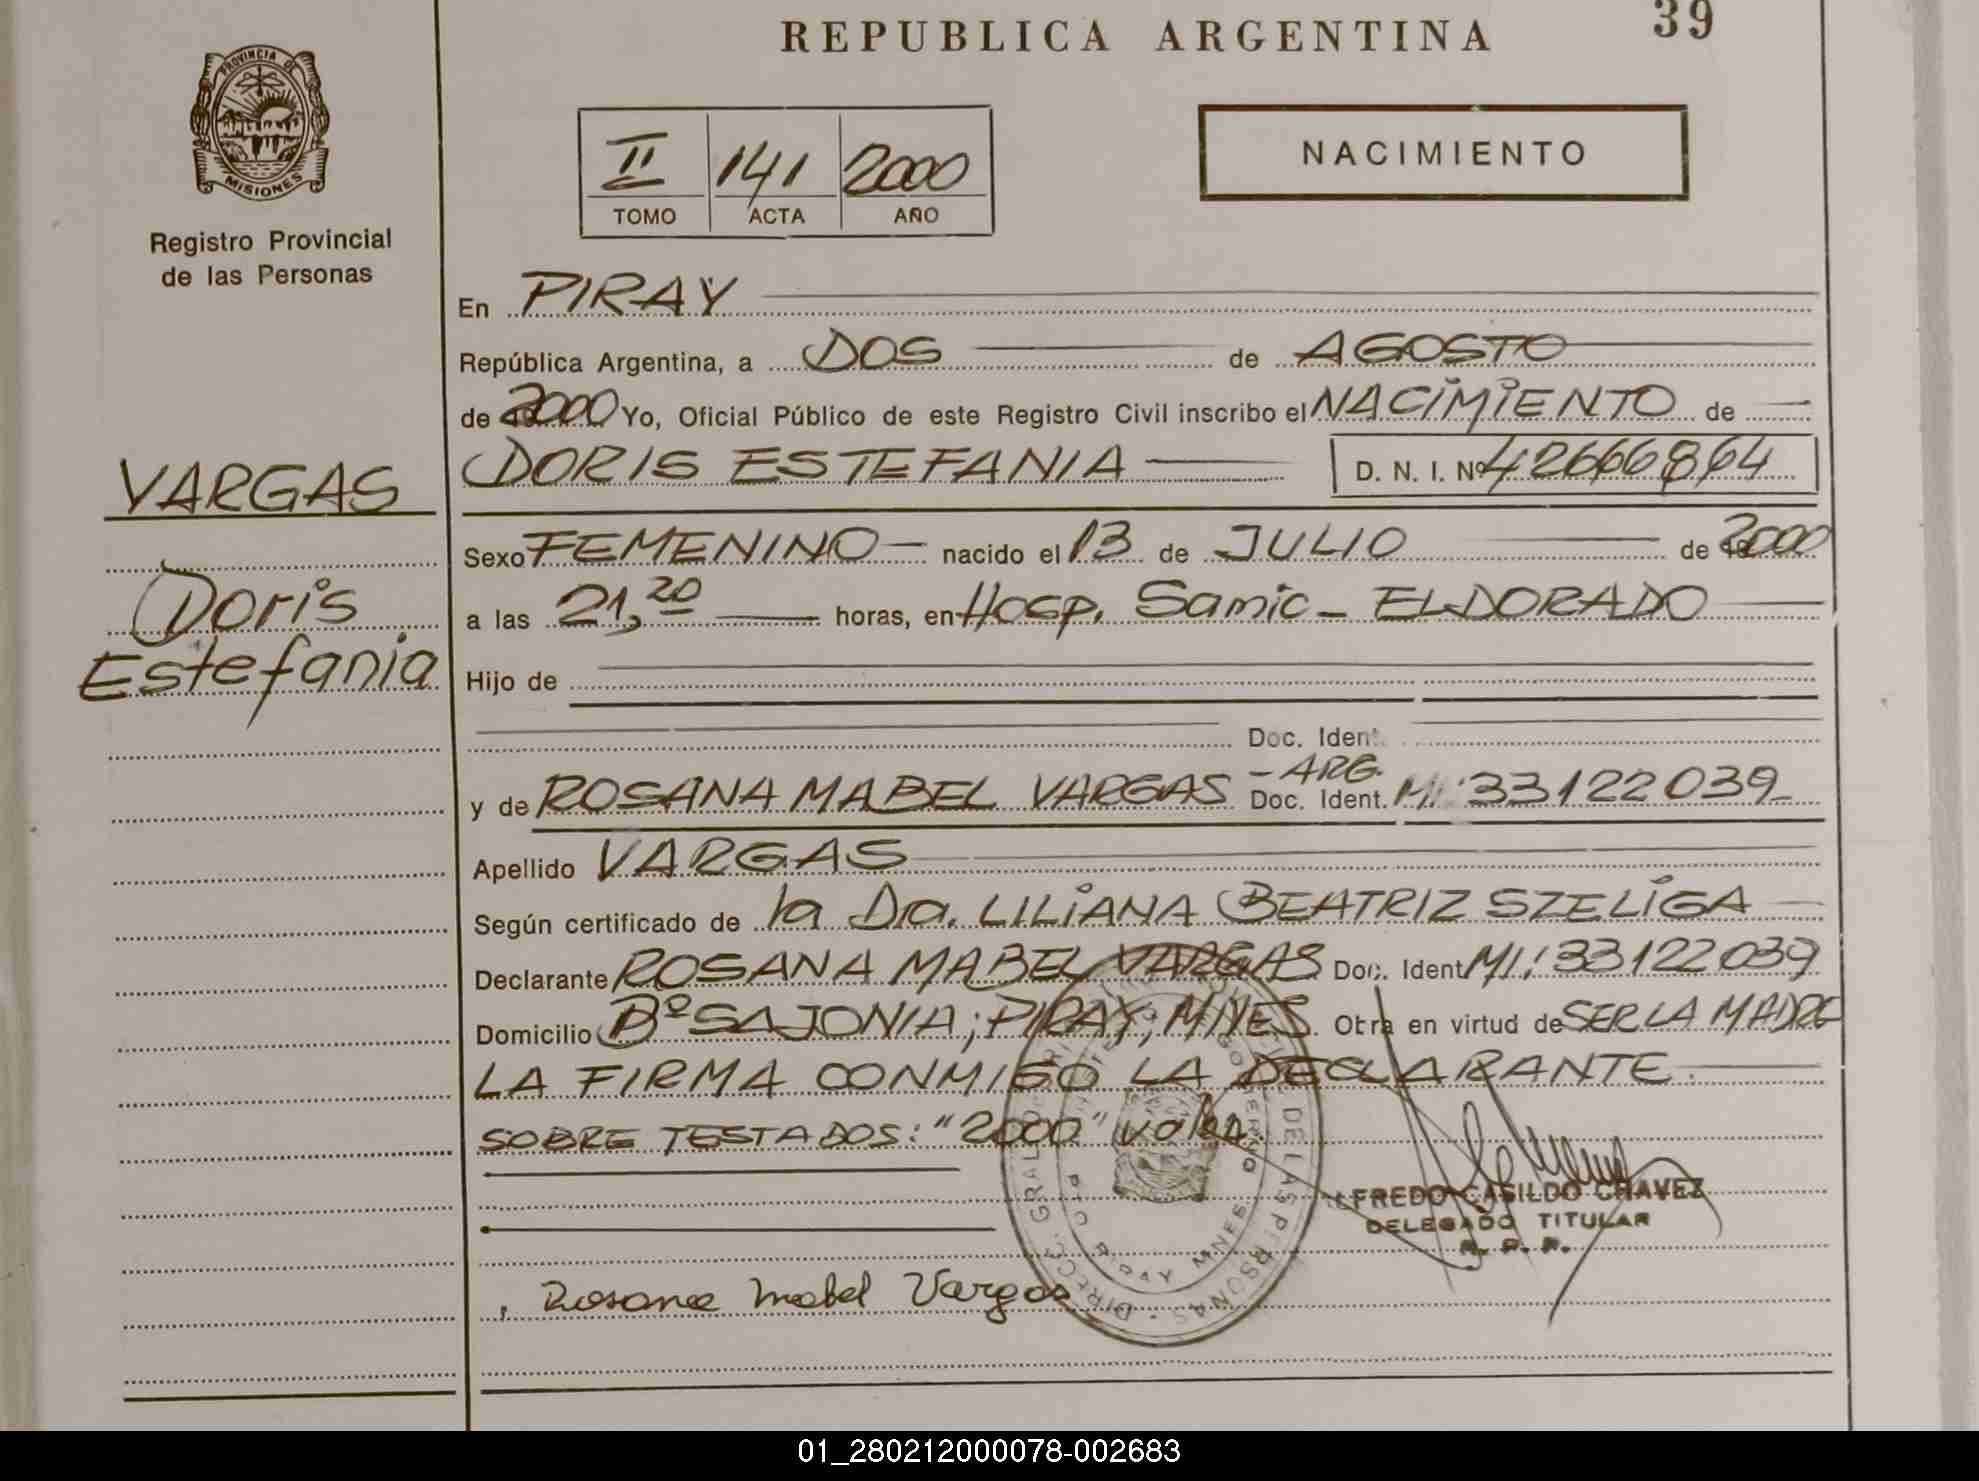 REPUBLICA ARGENTINA
39
PROVINCIA DE
MISIONES
Registro Provincial
de las Personas
II 141 2000
TOMO ACTA AÑO
NACIMIENTO
En PIRAY
República Argentina, a DOS de AGOSTO
de 2000 Yo, Oficial Público de este Registro Civil inscribo el NACIMIENTO de
VARGAS
DORIS ESTEFANIA D. N. I. Nº 42666864
Sexo FEMENINO nacido el 13 de JULIO de 2000
Doris
a las 21,20 horas, en Hosp. Samic - ELDORADO
Estefania
Hijo de
Doc. Ident.
y de ROSANA MABEL VARGAS - ARG. Doc. Ident. MI: 33122039
Apellido VARGAS
Según certificado de la Dra. LILIANA BEATRIZ SZELIGA
Declarante ROSANA MABEL VARGAS Doc. Ident MI: 33122039
Domicilio Bº SAJONIA; PIRAY, MNES. Obra en virtud de SER LA MADRE
LA FIRMA CONMIGO LA DECLARANTE.
SOBRE TESTADOS: "2000" vale.
ALFREDO CASILDO CHAVEZ
DELEGADO TITULAR
R. P. P.
Rosana Mabel Vargas
01_280212000078-002683